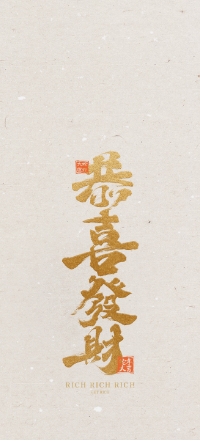 恭喜發財
RICH RICH RICH